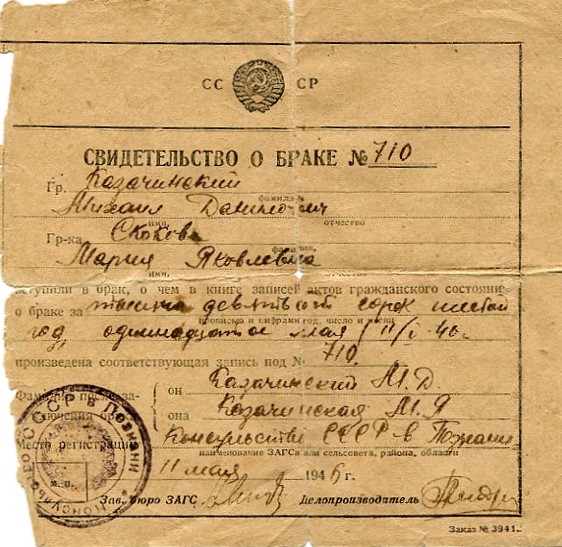 СС СР
СВИДЕТЕЛЬСТВО О БРАКЕ № 710
Гр. Казачинский
фамилия
Михаил Данилович
имя, отчество
Гр-ка Скокова
фамилия,
Мария Яковлевна
имя, отчество
вступили в брак, о чем в книге записей актов гражданского состояния
о браке за тысяча девятьсот сорок шестой
прописью и цифрами год, число и месяц
год, одиннадцатое мая 11/V 46 г.
произведена соответствующая запись под № 710.
Фамилии после за-
ключения брака
он Казачинский М.Д.
она Казачинская М.Я
Место регистрации Консульство СССР в Познани
наименование ЗАГСа или сельсовета, района, области
11 мая 1946 г.
Зав. бюро ЗАГС Делопроизводитель
КОНСУЛЬСТВО СССР В ПОЗНАНИ
М.П.
Заказ № 3941